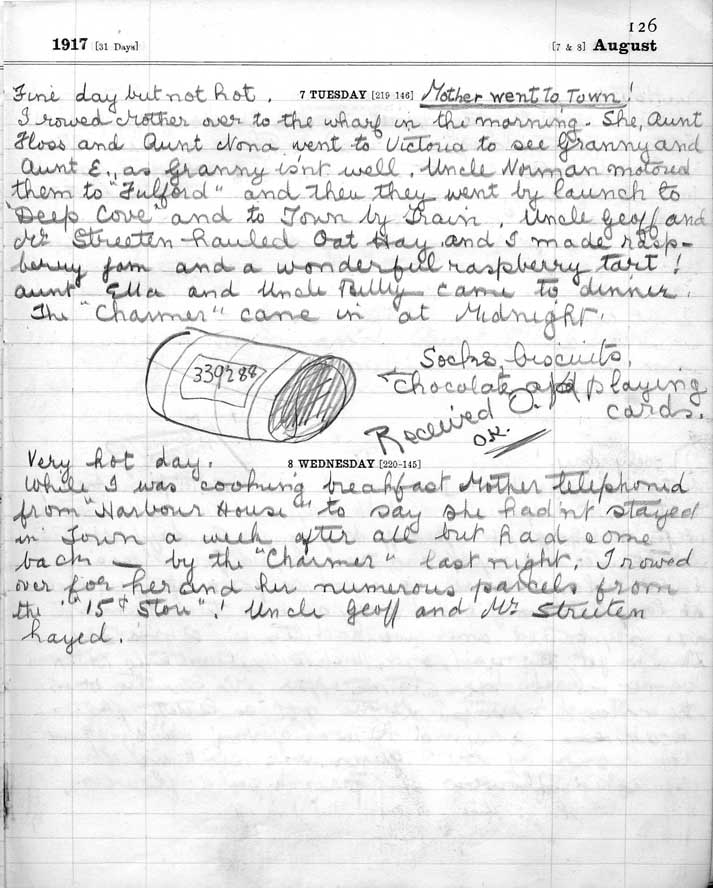 126
1917 [31 Days] [7 & 8] August
Fine day but not hot. 7 TUESDAY [219-146] Mother went to Town!
I rowed Mother over to the wharf in the morning. She, Aunt
Floss and Aunt Nona went to Victoria to see Granny and
Aunt E., as Granny isn't well. Uncle Norman motored
them to "Fulford" and then they went by launch to
"Deep Cove" and to Town by Train. Uncle Geoff and
Mr Streeten hauled Oat Hay and I made rasp-
berry jam and a wonderful raspberry tart!
Aunt Ella and Uncle Billy came to dinner.
The "Charmer" came in at Midnight.
339288
Socks, biscuits,
chocolate and playing
cards.
Received O.
OK.
Very hot day. 8 WEDNESDAY [220-145]
While I was cooking breakfast Mother telephonid
from "Harbour House" to say she hadn't stayed
in Town a week after all but had come
back — by the "Charmer" last night. I rowed
over for her and her numerous parcels from
the "15¢ Store"! Uncle Geoff and Mr Streeten
hayed.